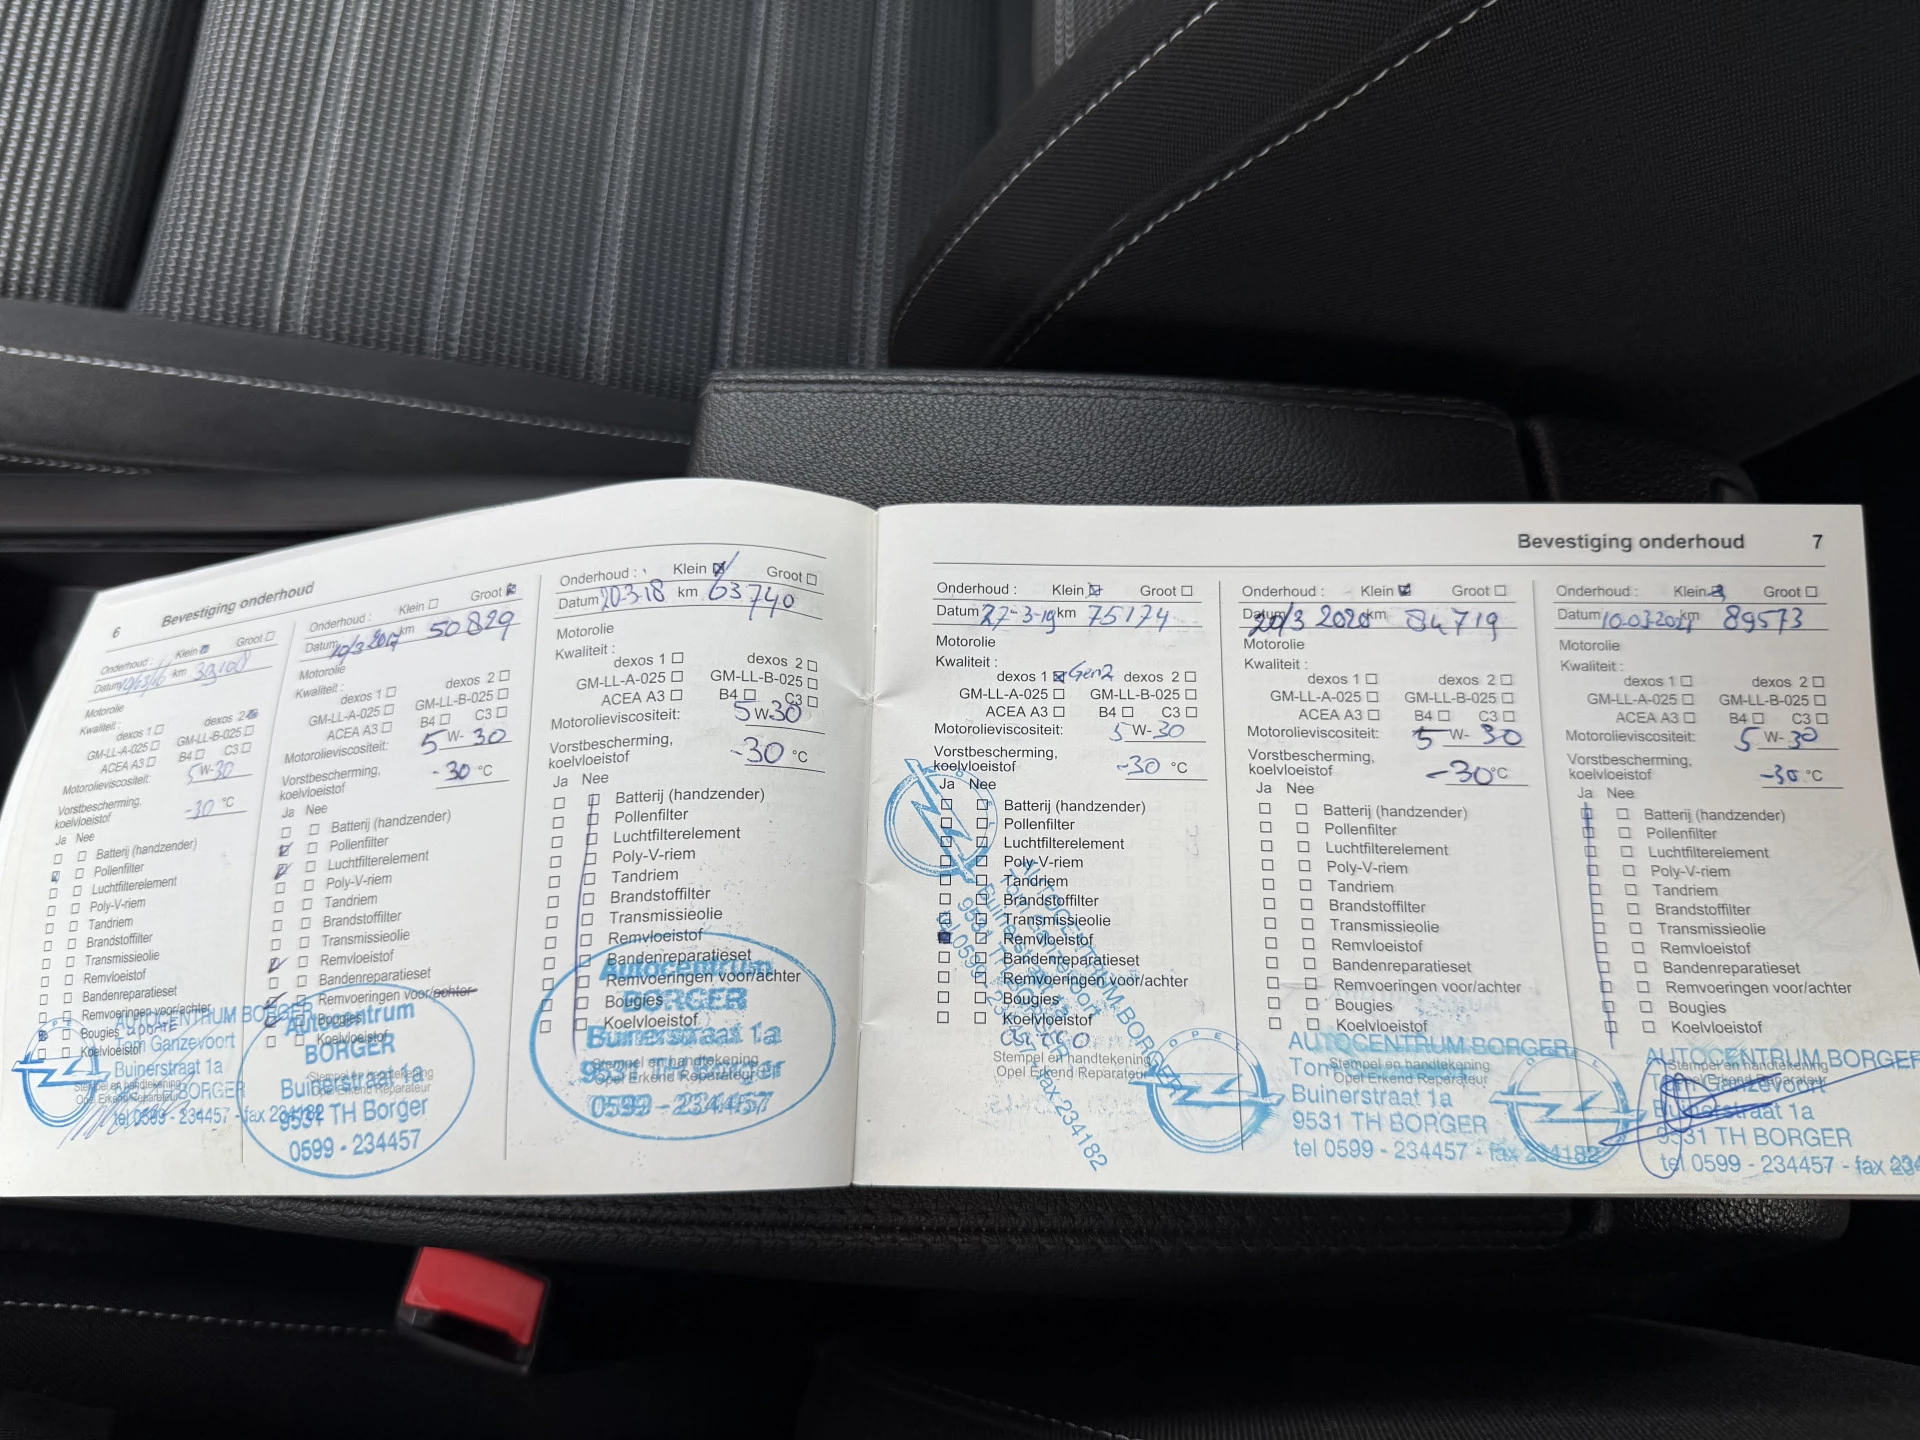 6 Bevestiging onderhoud
Onderhoud : Klein Groot
Datum km
Motorolie
Kwaliteit :
dexos 1 dexos 2
GM-LL-A-025 GM-LL-B-025
ACEA A3 B4 C3
Motorolieviscositeit: 5 W-30
Vorstbescherming,
koelvloeistof -30 °C
Ja Nee
Batterij (handzender)
Pollenfilter
Luchtfilterelement
Poly-V-riem
Tandriem
Brandstoffilter
Transmissieolie
Remvloeistof
Bandenreparatieset
Remvoeringen voor/achter
Bougies
Koelvloeistof
Stempel en handtekening
Opel Erkend Reparateur
AUTOCENTRUM BORGER
Tom Ganzevoort
Buinerstraat 1a
BORGER
tel 0599 - 234457 - fax 234182
Onderhoud : Klein Groot
Datum 10/3 2017 km 50829
Motorolie
Kwaliteit :
dexos 1 dexos 2
GM-LL-A-025 GM-LL-B-025
ACEA A3 B4 C3
Motorolieviscositeit: 5 W- 30
Vorstbescherming,
koelvloeistof -30 °C
Ja Nee
Batterij (handzender)
Pollenfilter
Luchtfilterelement
Poly-V-riem
Tandriem
Brandstoffilter
Transmissieolie
Remvloeistof
Bandenreparatieset
Remvoeringen voor/achter
Bougies
Koelvloeistof
Autocentrum
BORGER
Buinerstraat 1a
9531 TH Borger
0599 - 234457
Onderhoud : Klein Groot
Datum 20-3-18 km 63740
Motorolie
Kwaliteit :
dexos 1 dexos 2
GM-LL-A-025 GM-LL-B-025
ACEA A3 B4 C3
Motorolieviscositeit: 5 W-30
Vorstbescherming,
koelvloeistof -30 °C
Ja Nee
Batterij (handzender)
Pollenfilter
Luchtfilterelement
Poly-V-riem
Tandriem
Brandstoffilter
Transmissieolie
Remvloeistof
Bandenreparatieset
Remvoeringen voor/achter
Bougies
Koelvloeistof
Stempel en handtekening
Opel Erkend Reparateur
Autocentrum
BORGER
Buinerstraat 1a
9531 TH Borger
0599 - 234457
Bevestiging onderhoud 7
Onderhoud : Klein Groot
Datum 27-3-19 km 75174
Motorolie
Kwaliteit :
dexos 1 Gen2 dexos 2
GM-LL-A-025 GM-LL-B-025
ACEA A3 B4 C3
Motorolieviscositeit: 5 W-30
Vorstbescherming,
koelvloeistof -30 °C
Ja Nee
Batterij (handzender)
Pollenfilter
Luchtfilterelement
Poly-V-riem
Tandriem
Brandstoffilter
Transmissieolie
Remvloeistof
Bandenreparatieset
Remvoeringen voor/achter
Bougies
Koelvloeistof
Stempel en handtekening
Opel Erkend Reparateur
OPEL
AUTOCENTRUM BORGER
fax 234182
Onderhoud : Klein Groot
Datum 20/3 2020 km 84719
Motorolie
Kwaliteit :
dexos 1 dexos 2
GM-LL-A-025 GM-LL-B-025
ACEA A3 B4 C3
Motorolieviscositeit: 5 W- 30
Vorstbescherming,
koelvloeistof -30 °C
Ja Nee
Batterij (handzender)
Pollenfilter
Luchtfilterelement
Poly-V-riem
Tandriem
Brandstoffilter
Transmissieolie
Remvloeistof
Bandenreparatieset
Remvoeringen voor/achter
Bougies
Koelvloeistof
Stempel en handtekening
Opel Erkend Reparateur
OPEL
AUTOCENTRUM BORGER
Tom
Buinerstraat 1a
9531 TH BORGER
tel 0599 - 234457 - fax 234182
Onderhoud : Klein Groot
Datum 10-03-2021 km 89573
Motorolie
Kwaliteit :
dexos 1 dexos 2
GM-LL-A-025 GM-LL-B-025
ACEA A3 B4 C3
Motorolieviscositeit: 5 W- 30
Vorstbescherming,
koelvloeistof -30 °C
Ja Nee
Batterij (handzender)
Pollenfilter
Luchtfilterelement
Poly-V-riem
Tandriem
Brandstoffilter
Transmissieolie
Remvloeistof
Bandenreparatieset
Remvoeringen voor/achter
Bougies
Koelvloeistof
Stempel en handtekening
Opel Erkend Reparateur
AUTOCENTRUM BORGER
Tom Ganzevoort
Buinerstraat 1a
9531 TH BORGER
tel 0599 - 234457 - fax 234